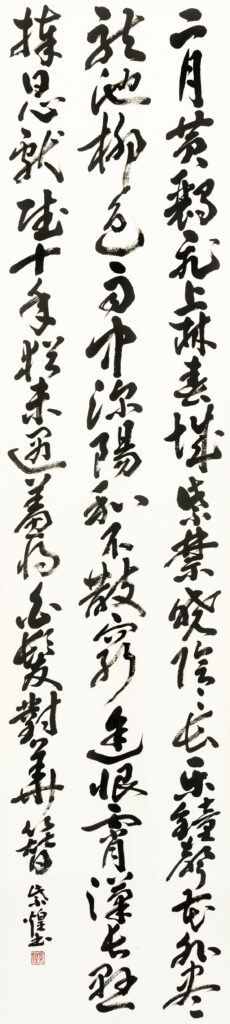 二月黃鸝飛上林春城紫禁曉陰〻長樂鐘聲花外盡
龍池柳色雨中深陽和不散窮途恨霄漢長懸
捧日心獻賦十年猶未遇羞將白髮對華簪 煌書